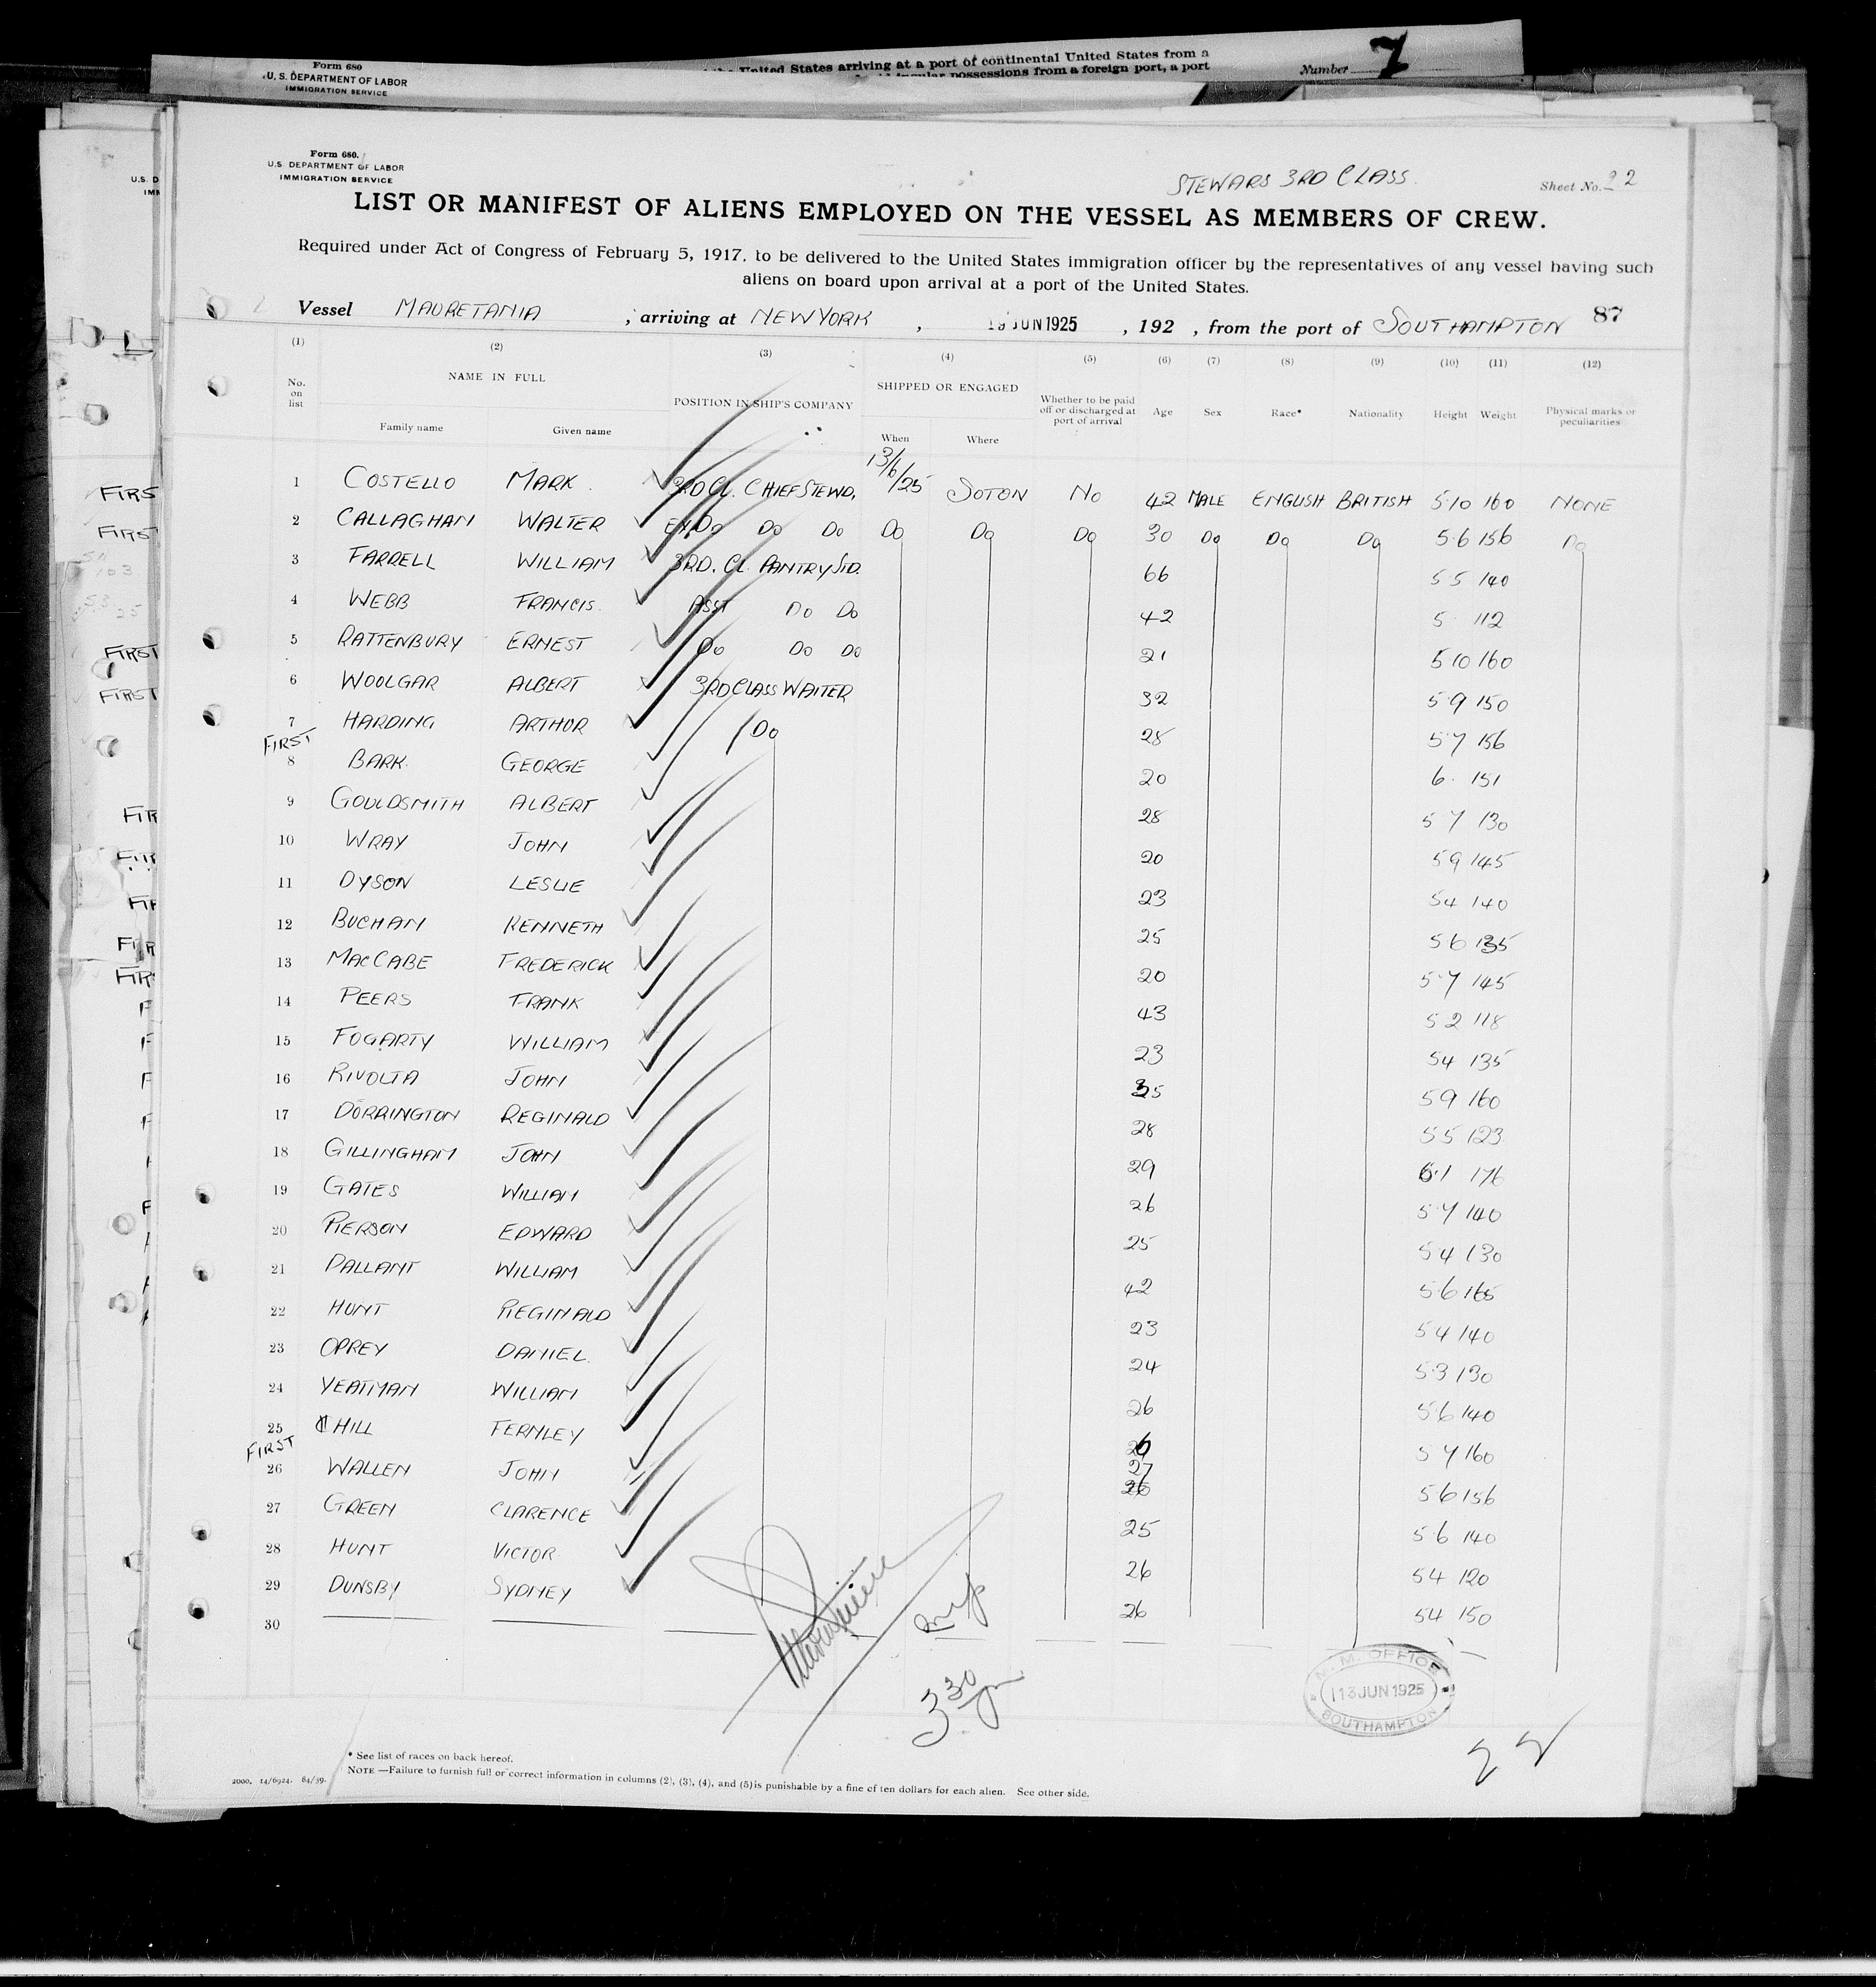 Form 680
U. S. DEPARTMENT OF LABOR
IMMIGRATION SERVICE
United States arriving at a port of continental United States from a
possessions from a foreign port, a port
Number 7
U.S. D
IMM
Form 680.
U.S. DEPARTMENT OF LABOR
IMMIGRATION SERVICE
STEWARS 3RD CLASS.
Sheet No. 22
LIST OR MANIFEST OF ALIENS EMPLOYED ON THE VESSEL AS MEMBERS OF CREW.
Required under Act of Congress of February 5, 1917, to be delivered to the United States immigration officer by the representatives of any vessel having such
aliens on board upon arrival at a port of the United States.
Vessel MAURETANIA, arriving at NEW YORK, 19 JUN 1925, 192 , from the port of SOUTHAMPTON 87
(1) (2) (3) (4) (5) (6) (7) (8) (9) (10) (11) (12)
No. on list NAME IN FULL POSITION IN SHIP'S COMPANY SHIPPED OR ENGAGED Whether to be paid off or discharged at port of arrival Age Sex Race* Nationality Height Weight Physical marks or peculiarities
Family name Given name When Where
1 COSTELLO MARK. 3RD CL. CHIEF STEWD. 13/6/25 SOTON NO 42 MALE ENGLISH BRITISH 5·10 160 NONE
2 CALLAGHAN WALTER Do Do Do Do Do 30 Do Do Do 5·6 156 Do
3 FARRELL WILLIAM 3RD. CL. PANTRY STD. 66 5 5 140
4 WEBB FRANCIS. ASST Do Do 42 5 112
5 RATTENBURY ERNEST Do Do Do 21 5 10 160
6 WOOLGAR ALBERT 3RD CLASS WAITER 32 5 9 150
7 HARDING ARTHUR Do 28 5·7 156
FIRST
8 BARK. GEORGE 20 6· 151
9 GOULDSMITH ALBERT 28 5 7 130
10 WRAY JOHN 20 5 9 145
11 DYSON LESLIE 23 5 4 140
12 BUCHAN KENNETH 25 5 6 135
13 MACCABE FREDERICK 20 5·7 145
14 PEERS FRANK 43 5 2 118
15 FOGARTY WILLIAM 23 5 4 135
16 RIVOLTA JOHN 35 5 9 160
17 DORRINGTON REGINALD 28 5 5 123
18 GILLINGHAM JOHN 29 6·1 176
19 GATES WILLIAM 26 5·7 140
20 PIERSON EDWARD 25 5 4 130
21 PALLANT WILLIAM 42 5·6 165
22 HUNT REGINALD 23 5 4 140
23 OPREY DANIEL. 24 5·3 130
24 YEATMAN WILLIAM 26 5·6 140
25 HILL FERNLEY 26 5 7 160
FIRST
26 WALLEN JOHN 27 5 6 156
27 GREEN CLARENCE 25 5·6 140
28 HUNT VICTOR. 26 5 4 120
29 DUNSBY SYDNEY 26 5 4 150
30
3 30
M. M. OFFICE
13 JUN 1925
SOUTHAMPTON
22
* See list of races on back hereof.
NOTE —Failure to furnish full or correct information in columns (2), (3), (4), and (5) is punishable by a fine of ten dollars for each alien. See other side.
2000. 14/6924. 84/59.